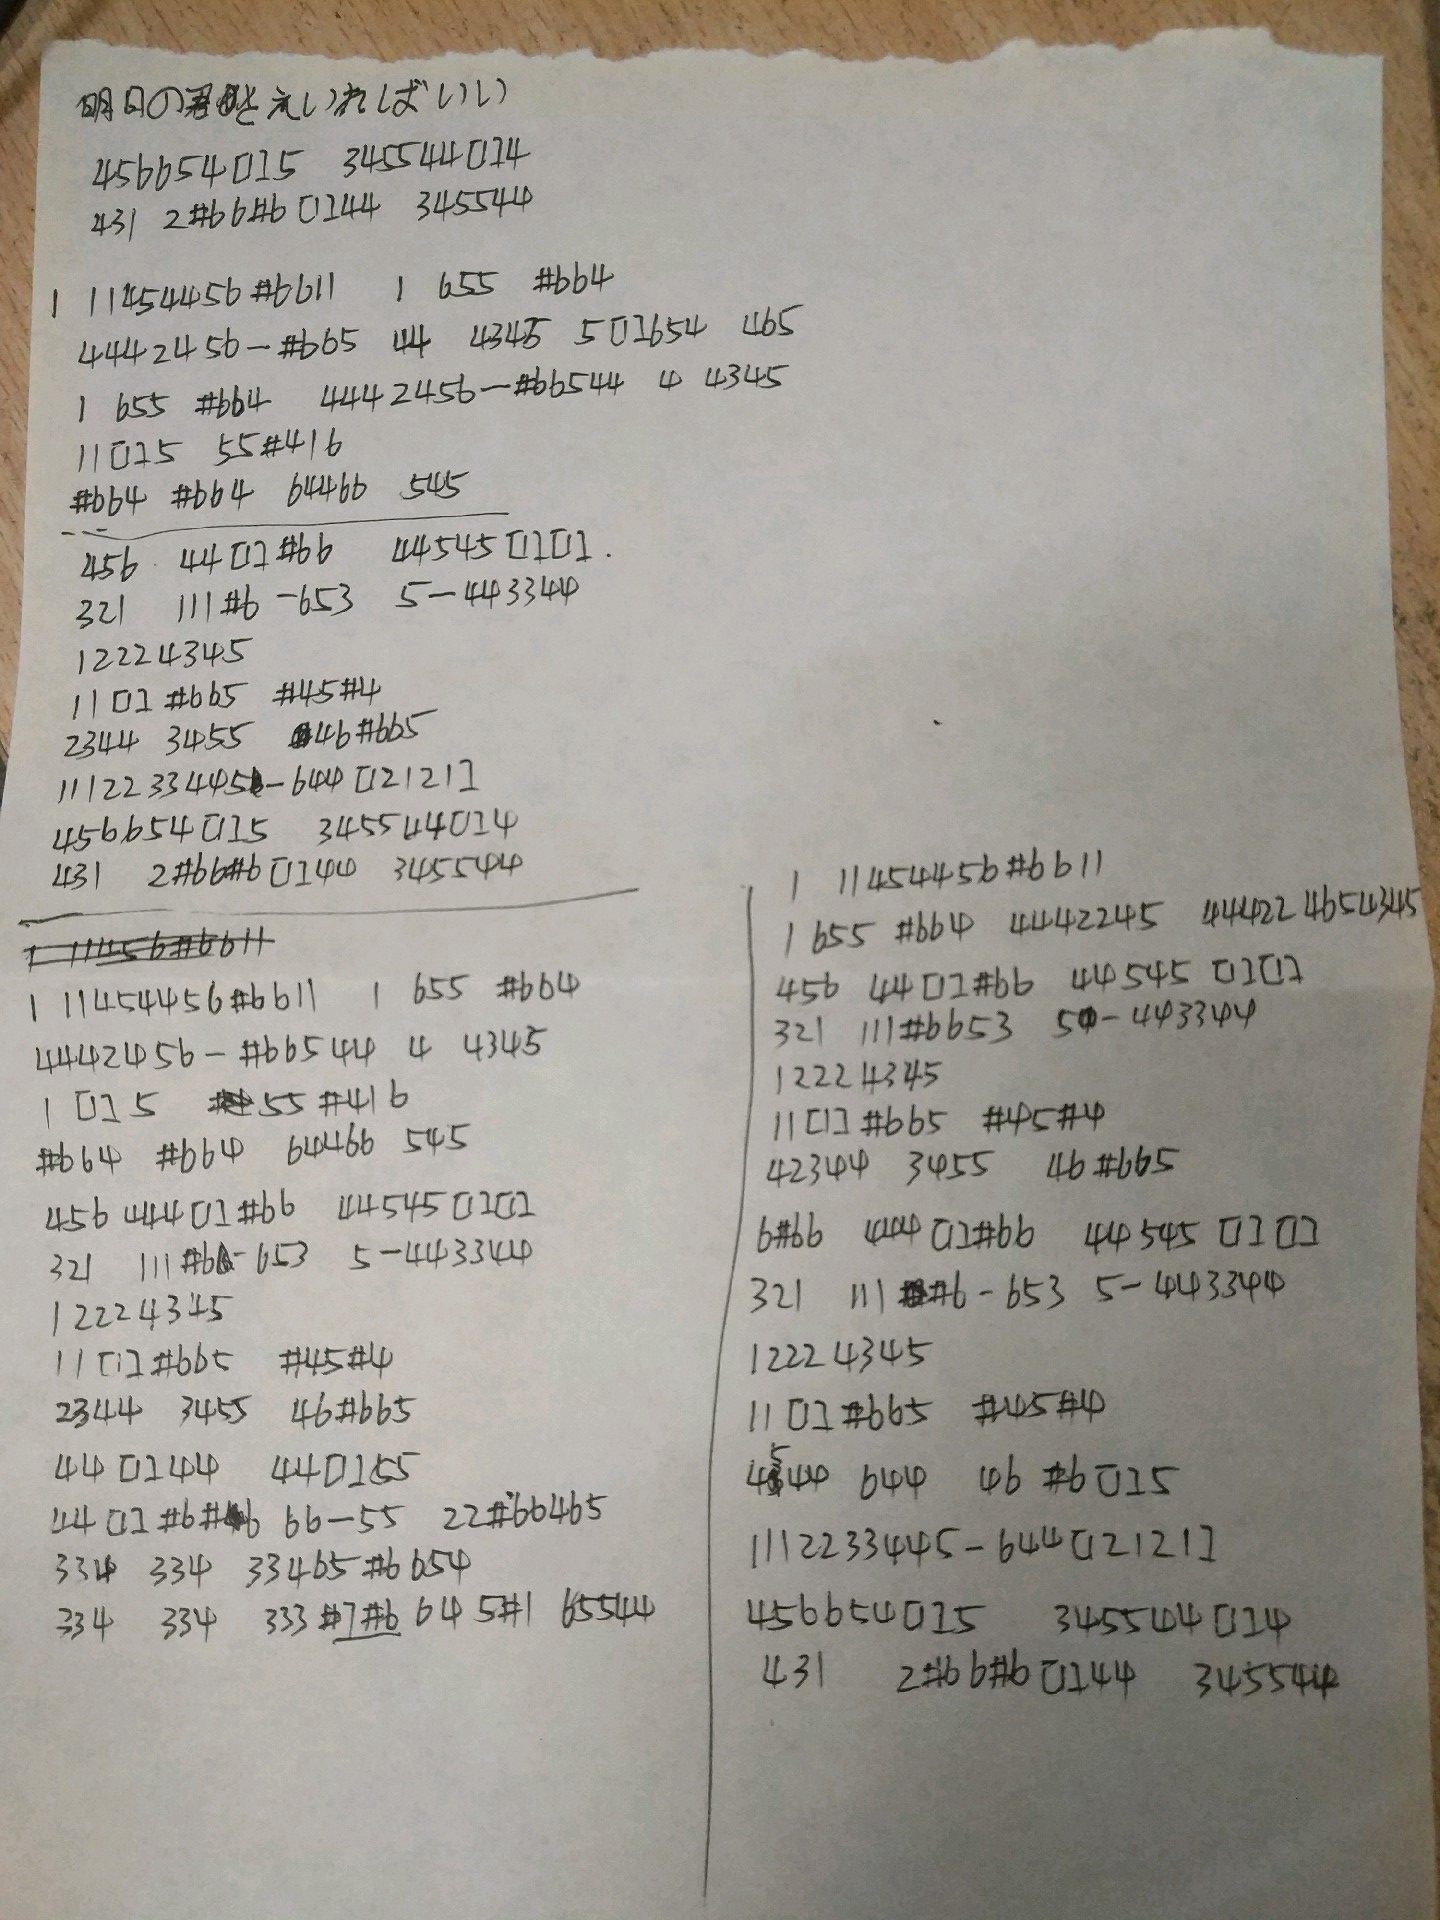 明日の君さえいればいい
456654[1]5 345544[1]4
431 2#66#6[1]44 345544
1 11454456#6611 1 655 #664
4442456-#665 44 4345 5[1]654 465
1 655 #664 4442456-#66544 4 4345
11[1]5 55#416
#664 #664 64466 545
456 44[1]#66 44545[1][1].
321 111#6-653 5-443344
12224345
11[1]#665 #45#4
2344 3455 46#665
11122334456-644[2121]
456654[1]5 345544[1]4
431 2#66#6[1]44 345544
1 11456#6611
1 11454456#6611 1 655 #664
4442456-#66544 4 4345
1[1]5 55#416
#664 #664 64466 545
456 444[1]#66 44545[1][1]
321 111#6-653 5-443344
12224345
11[1]#665 #45#4
2344 3455 46#665
44[1]44 44[1]55
44[1]#6#6 66-55 22#66465
334 334 33465#6654
334 334 333#7#6 64 5#1 65544
1 11454456#6611
1 655 #664 4442245 444224654345
456 44[1]#66 44545[1][1]
321 111#6653 5-443344
12224345
11[1]#665 #45#4
42344 3455 46#665
6#66 444[1]#66 44545[1][1]
321 111#6-653 5-443344
12224345
11[1]#665 #45#4
4544 644 46 #6[1]5
1112233445-644[2121]
456654[1]5 345544[1]4
431 2#66#6[1]44 345544